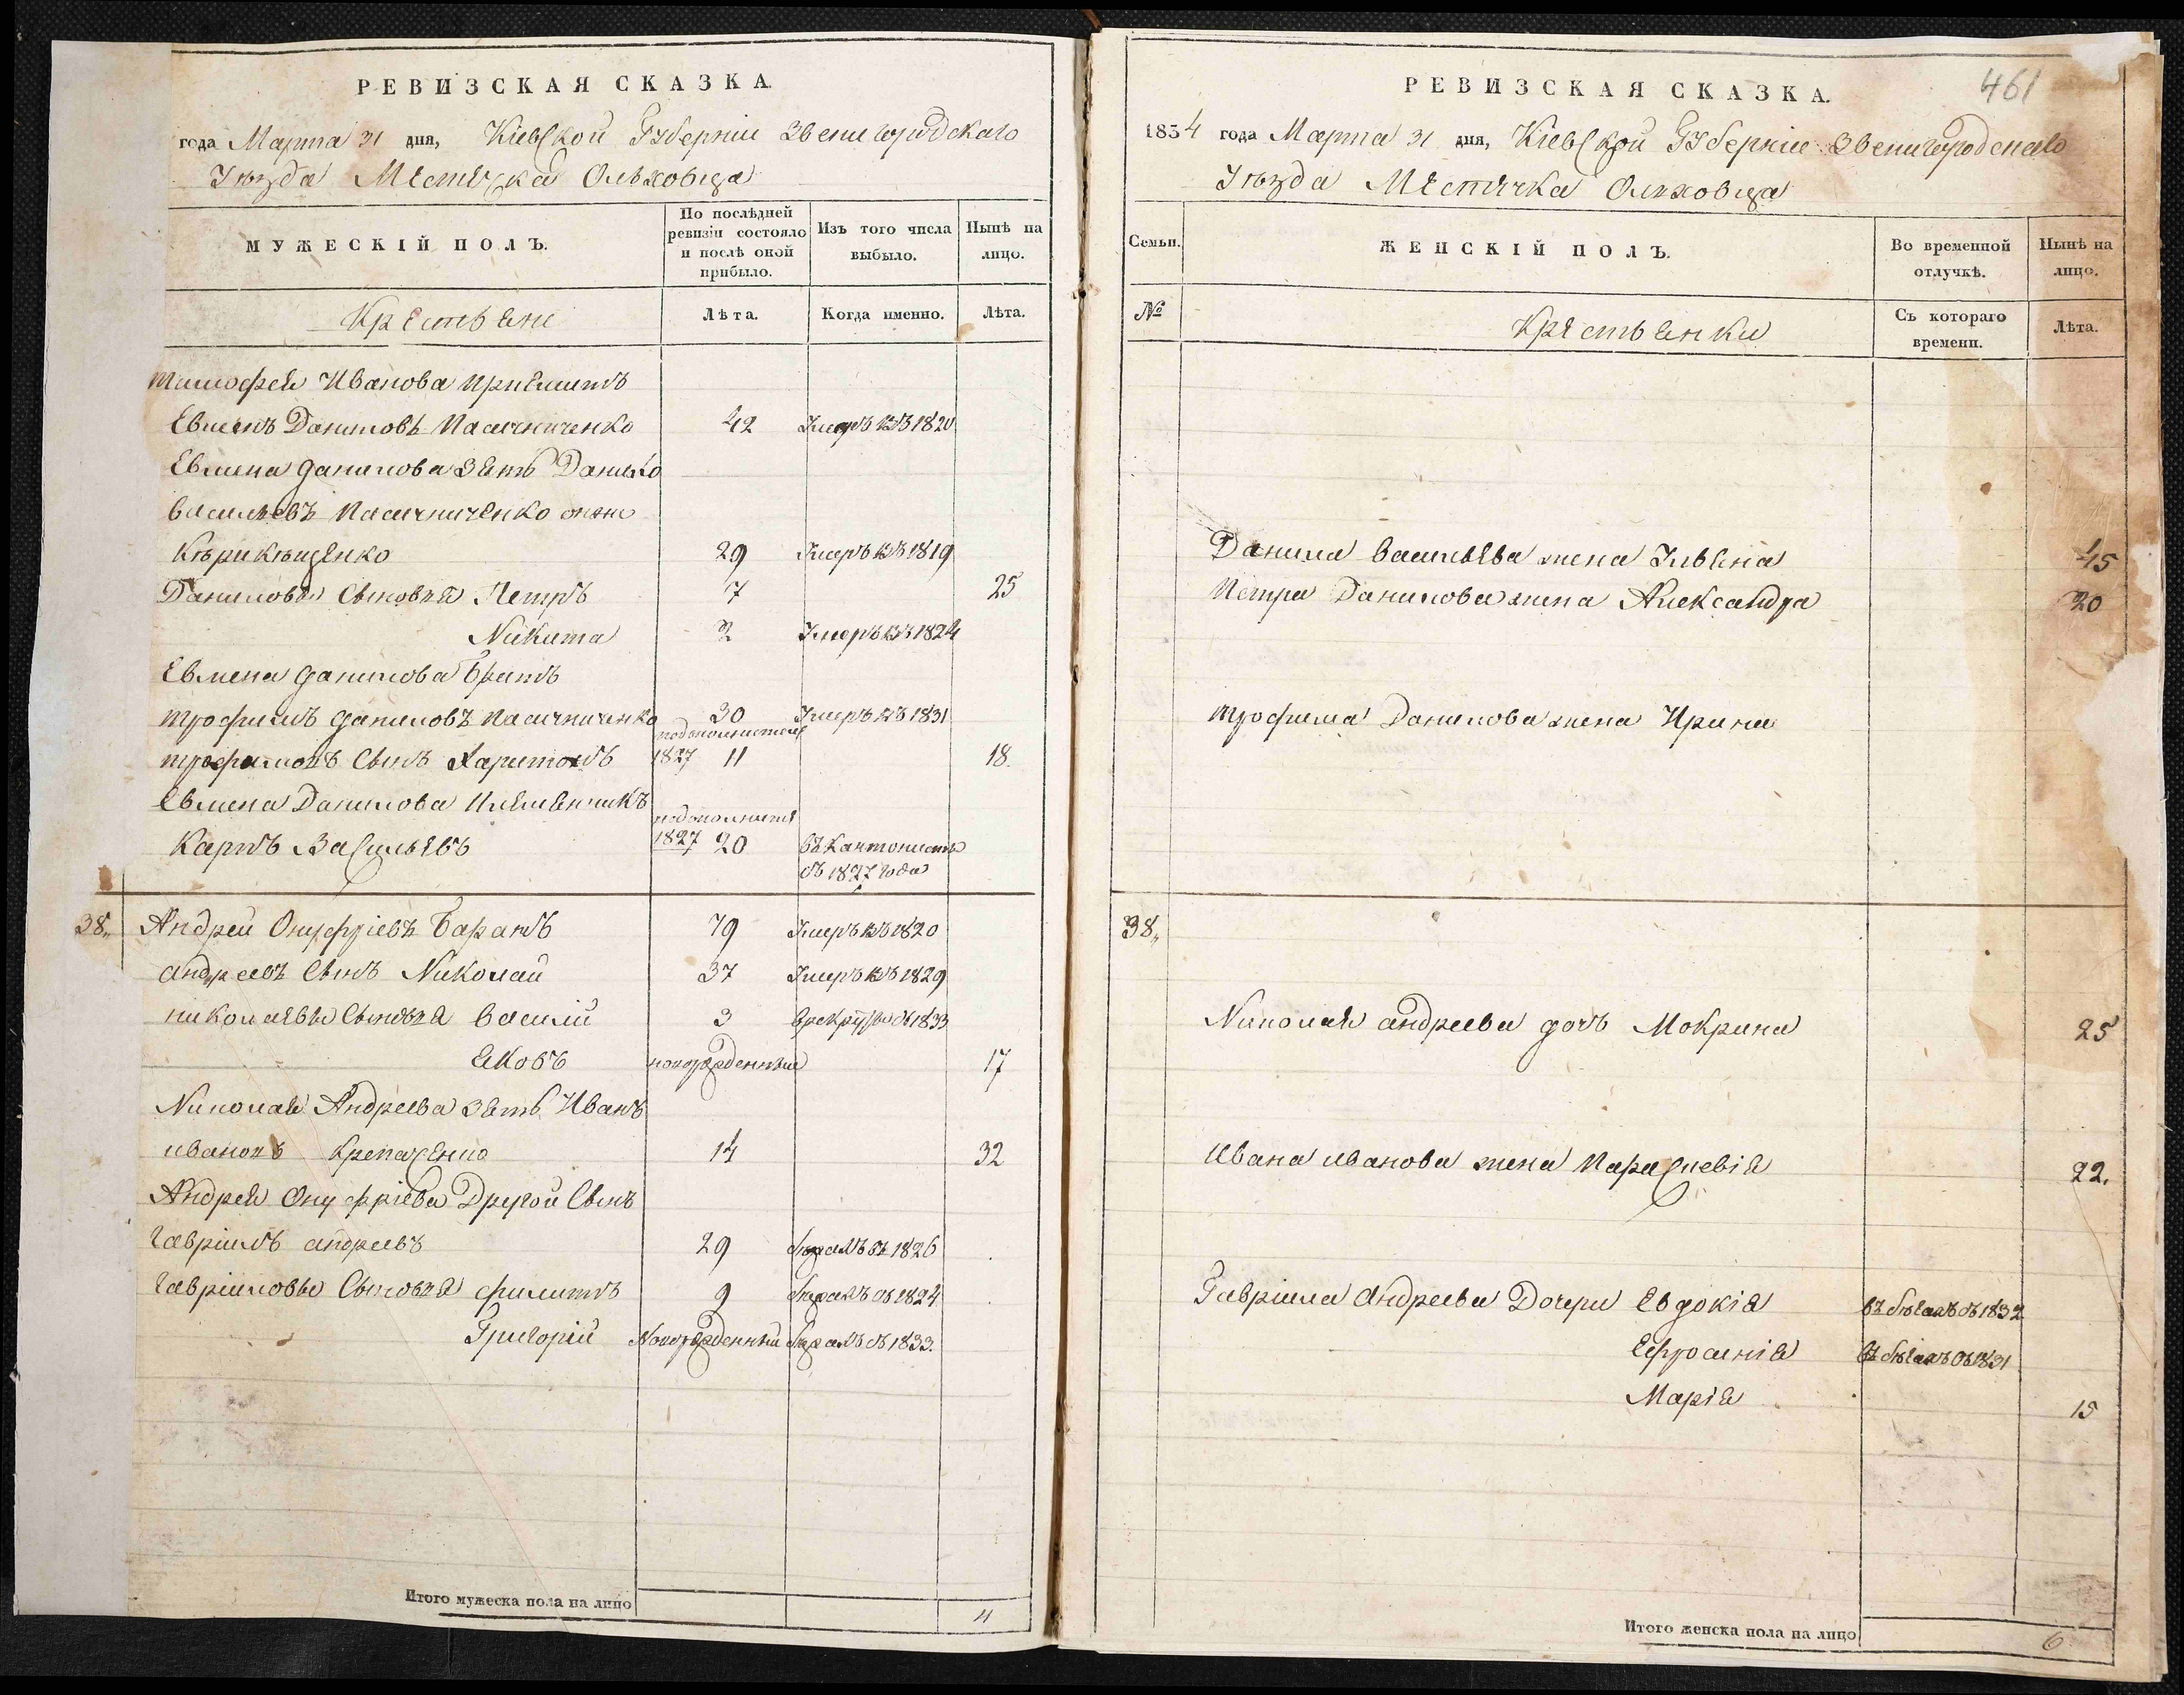 РЕВИЗСКАЯ СКАЗКА.
года Марта 31 дня, Кіевской Губерніи Звенигородскаго
Уѣзда Местечка Ольховца
МУЖЕСКІЙ ПОЛЪ.
По послѣдней ревизіи состояло и послѣ оной прибыло.
Изъ того числа выбыло.
Нынѣ на лицо.
Крестьяне
Лѣта.
Когда именно.
Лѣта.
Тимофея Иванова приемышъ
Евменъ Даниловъ Пасичниченко 42 Умеръ въ 1820
Евмена Данилова зять Данило
Васильевъ Пасичниченко онже
29 Умеръ въ 1819
Даниловы сыновья Петръ 7 25
Никита 2 Умеръ въ 1824
Евмена Данилова братъ
Трофимъ Даниловъ Пасичниченко 30 Умеръ въ 1831
Трофимовъ сынъ Харитонъ 1827 11 18.
Евмена Данилова племенникъ
Карпъ Васильевъ 1827 20 въ кантонистъ
съ 1827 года
38„ Андрей Онуфріевъ Баранъ 79 Умеръ въ 1820
Андреевъ сынъ Николай 37 Умеръ въ 1829
Николаевы сыновья Василій 3 1833
Яковъ новорожденный 17
Николая Андреева зять Иванъ
Ивановъ 14 32
Андрея Онуфріева Другой сынъ
Гавріилъ Андреевъ 29 бежалъ въ 1826
Гавріиловы сыновья Филипъ 9 бежалъ въ 1824
Григорій Новорожденный бежалъ въ 1833.
Итого мужеска пола на лицо 4
461
РЕВИЗСКАЯ СКАЗКА.
1834 года Марта 31 дня, Кіевской Губерніи Звенигородскаго
Уѣзда Местечка Ольховца
Семьи.
ЖЕНСКІЙ ПОЛЪ.
Во временной отлучкѣ.
Нынѣ на лицо.
№
Крестьянки
Съ котораго времени.
Лѣта.
Данила Васильева жена Ульяна 45
Петра Данилова жена Александра 20
Трофима Данилова жена Ирина
38„
Николая Андреева дочь Мокрина 25
Ивана Иванова жена Параскевія 22.
Гавріила Андреева Дочери Евдокія въ бѣгахъ съ 1832
Ефросинія въ бѣгахъ съ 1831
Марія 15
Итого женска пола на лицо 6